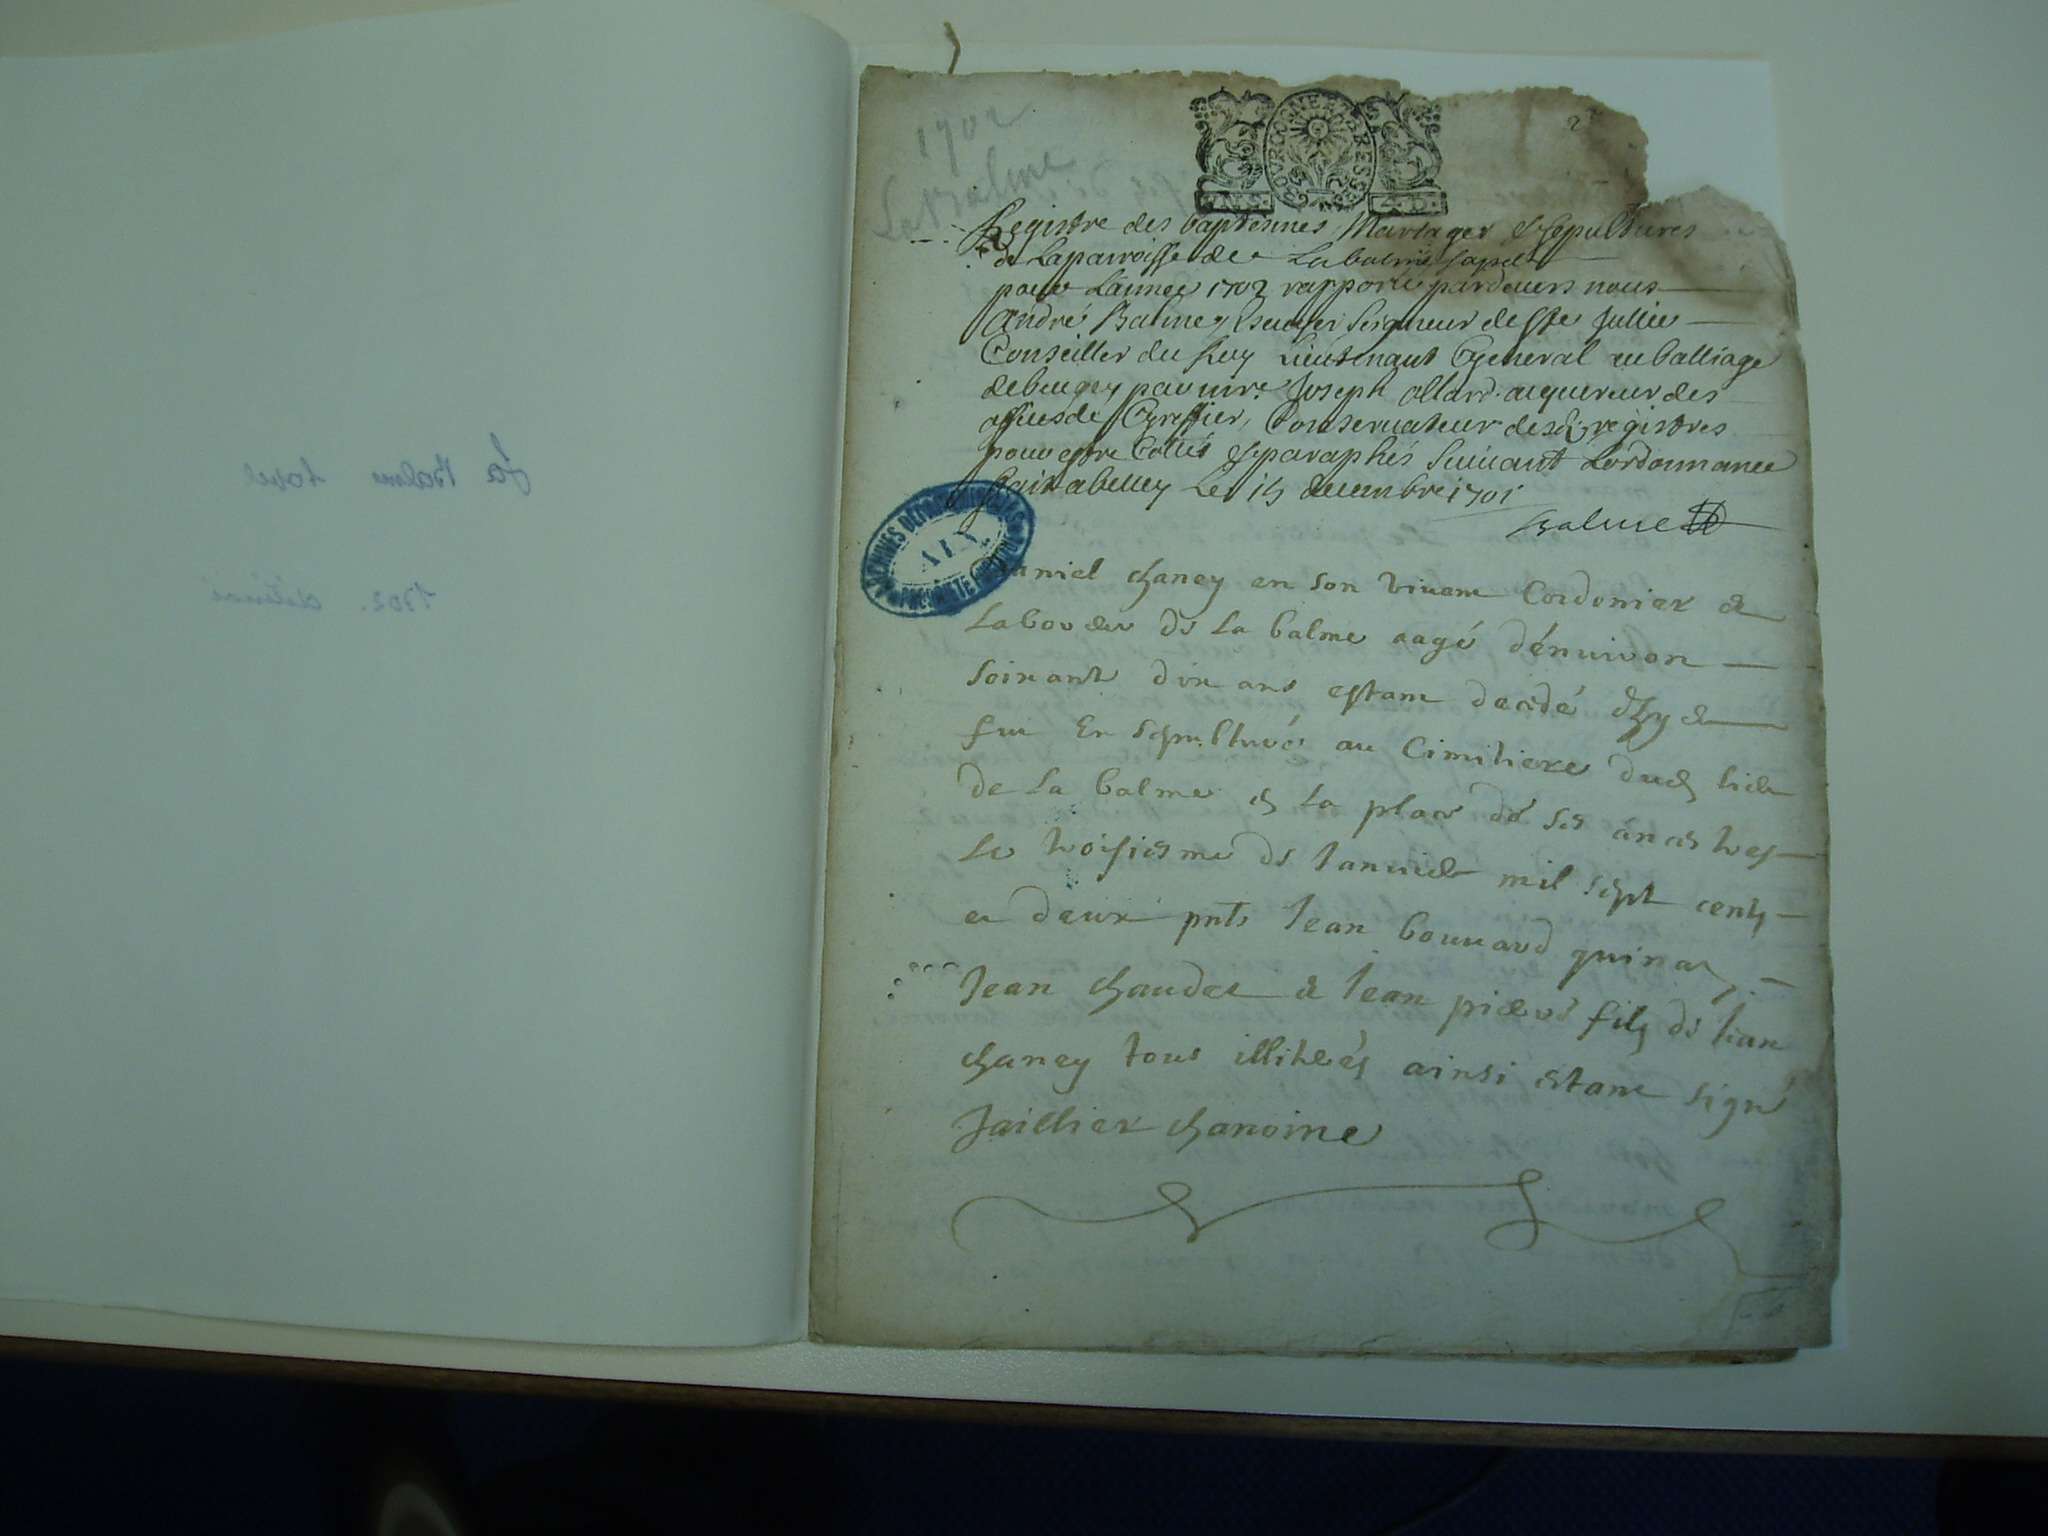 La Balme
1702.
1702
La Balme
BOURGOGNE ET BRESSE
4.D.
2
Registre des baptesmes Mariages & sepultures
de Laparroisse de Labalme sapel
pour Lannee 1702 rapporté pardevers nous
André Balme Escuyer Seigneur de Ste Jullie
Conseiller du Roy Lieutenant General au balliage
debeugey par mre Joseph allard acquereur des
offices de Greffier, Conservateur desd registres
pour estre Cottés & paraphés suivant Lordonnance
fait abelley Le 15 decembre 1701
Balme
ARCHIVES DEPARTEMENTALES
AIN
Daniel chaney en son vivant Cordonier &
Laboureur de La balme aagé d'énviron
soixant dix ans estant decedé
fut En sepulturé au Cimitiere dud lieu
de La balme & La place de ses ancestres
Le troisiesme de Janvier mil sept cents
et deux pnts Jean bouvard
Jean chaudet & Jean pierre fils de Jean
chaney tous illiterés ainsi estant signé
Jaillier chanoine